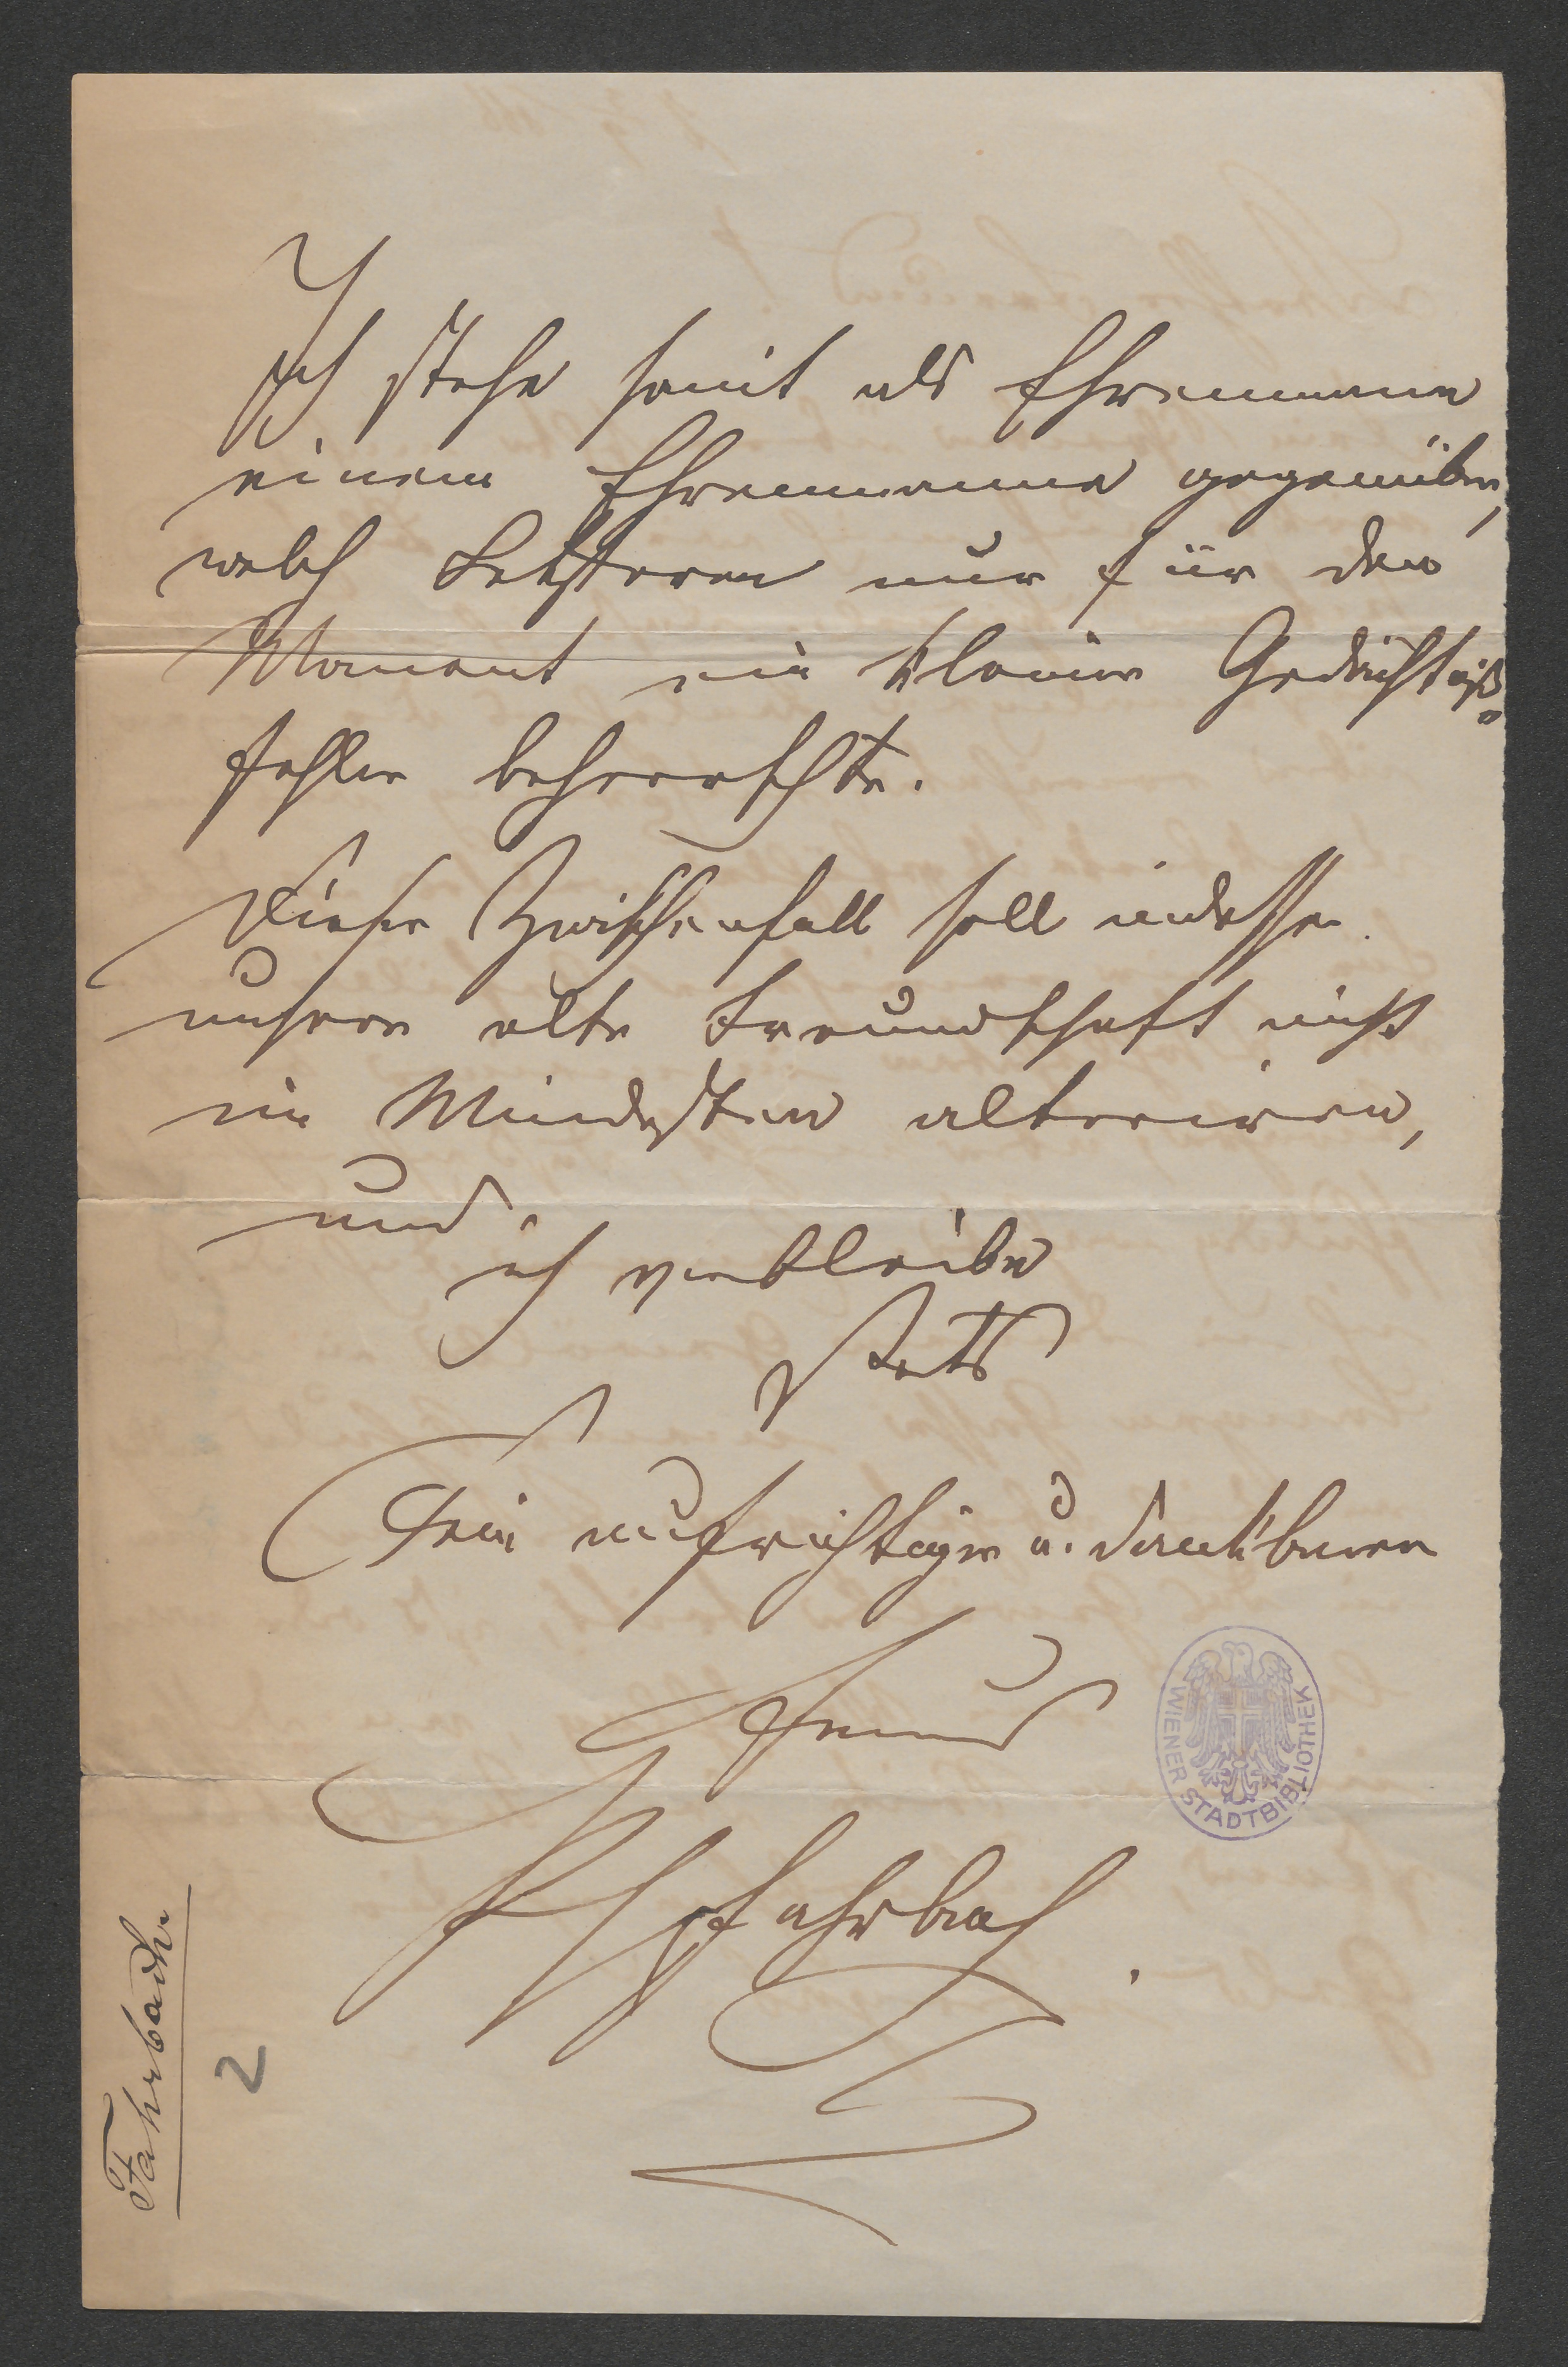 Ich stehe somit als Ehrenmann
einem Ehrenmanne gegenüber,
welch Letzteren nur für den
Moment ein kleiner Gedächtniß-
fehler beherrschte.
Dieser Zwischenfall soll indessen
unsere alte Freundschaft nicht
im Mindesten alteriren,
und
ich verbleibe
stets
Dein aufrichtiger u. dankbarer
Freund
Fahrbach
WIENER STADTBIBLIOTHEK
Fahrbach
2